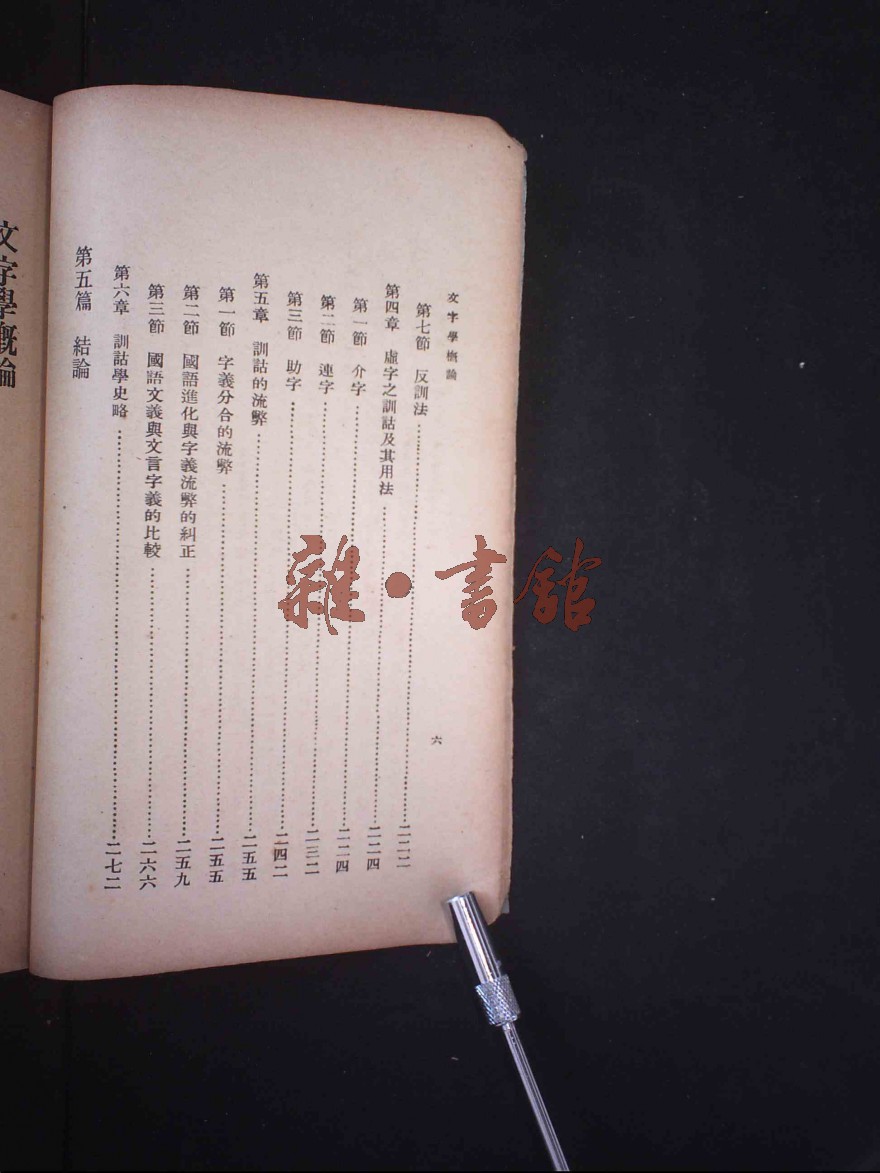 文字學概論
第七節 反訓法………二二二
第四章 虛字之訓詁及其用法………二二四
第一節 介字………二二四
第二節 連字………二三二
第三節 助字………二四二
第五章 訓詁的流弊………二五五
第一節 字義分合的流弊………二五五
第二節 國語進化與字義流弊的糾正………二五九
第三節 國語文義與文言字義的比較………二六六
第六章 訓詁學史略………二七二
第五篇 結論
六
文字學概論
雜·書館